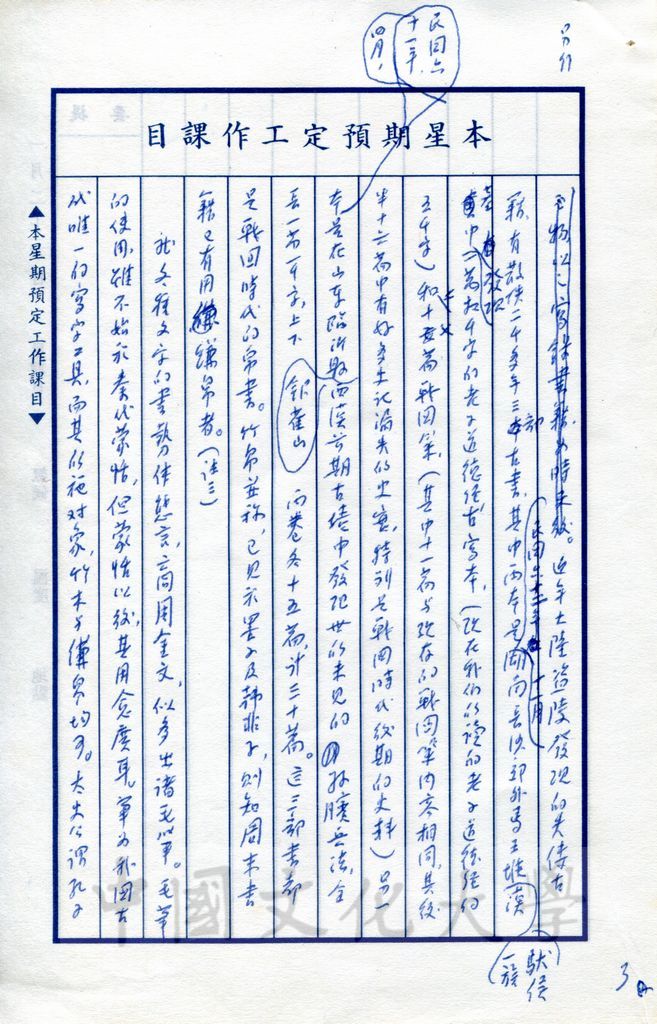 另行
民國六十一年四月,
本星期預定工作課目
以之寫錄書籍,為時未幾。近年大陸盜陵發現的失傳古
籍,有散佚二千多年三部古書,其中兩本是民國六十二年十一月湖南長沙郊外馬王堆西漢
軑侯一族
墓中發現二篇五千字的老子道德經古寫本,(現在我們所讀的老子道德經約
五千字)和十五篇戰國策,(其中十一篇與現存的戰國策內容相同,其後
半十六篇中有好多史記漏失的史實,特別是戰國時代後期的史料)另一
本是在山東臨沂縣銀雀山西漢前期古墳中發現世所未見的孫臏兵法,全
長一萬一千字,上下兩卷各十五篇,計三十篇。這三部書都
是戰國時代的帛書。竹帛並稱,已見於墨子及韓非子,則知周末書
籍已有用縑帛者。(註三)
就各種文字的書勢體態言,商周金文,似多出諸毛筆。毛筆
的使用,雖不始於秦代蒙恬,但蒙恬以後,其用愈廣耳。筆為我國古
代唯一的寫字工具,而其所施對象,竹木與縑帛均可。太史公謂孔子
▲本星期預定工作課目▼
中國文化大學
3